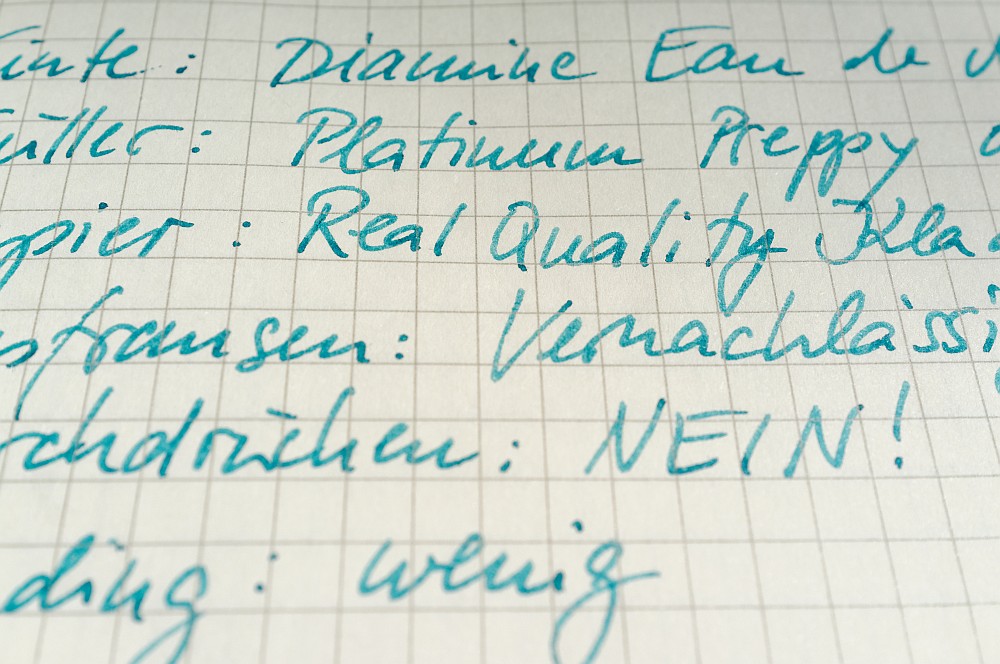 Tinte: Diamine Eau de
Füller: Platinum Preppy
Papier: Real Quality Kla
Ausfransen: Vernachlässi
Durchdrücken: NEIN!
ding: wenig